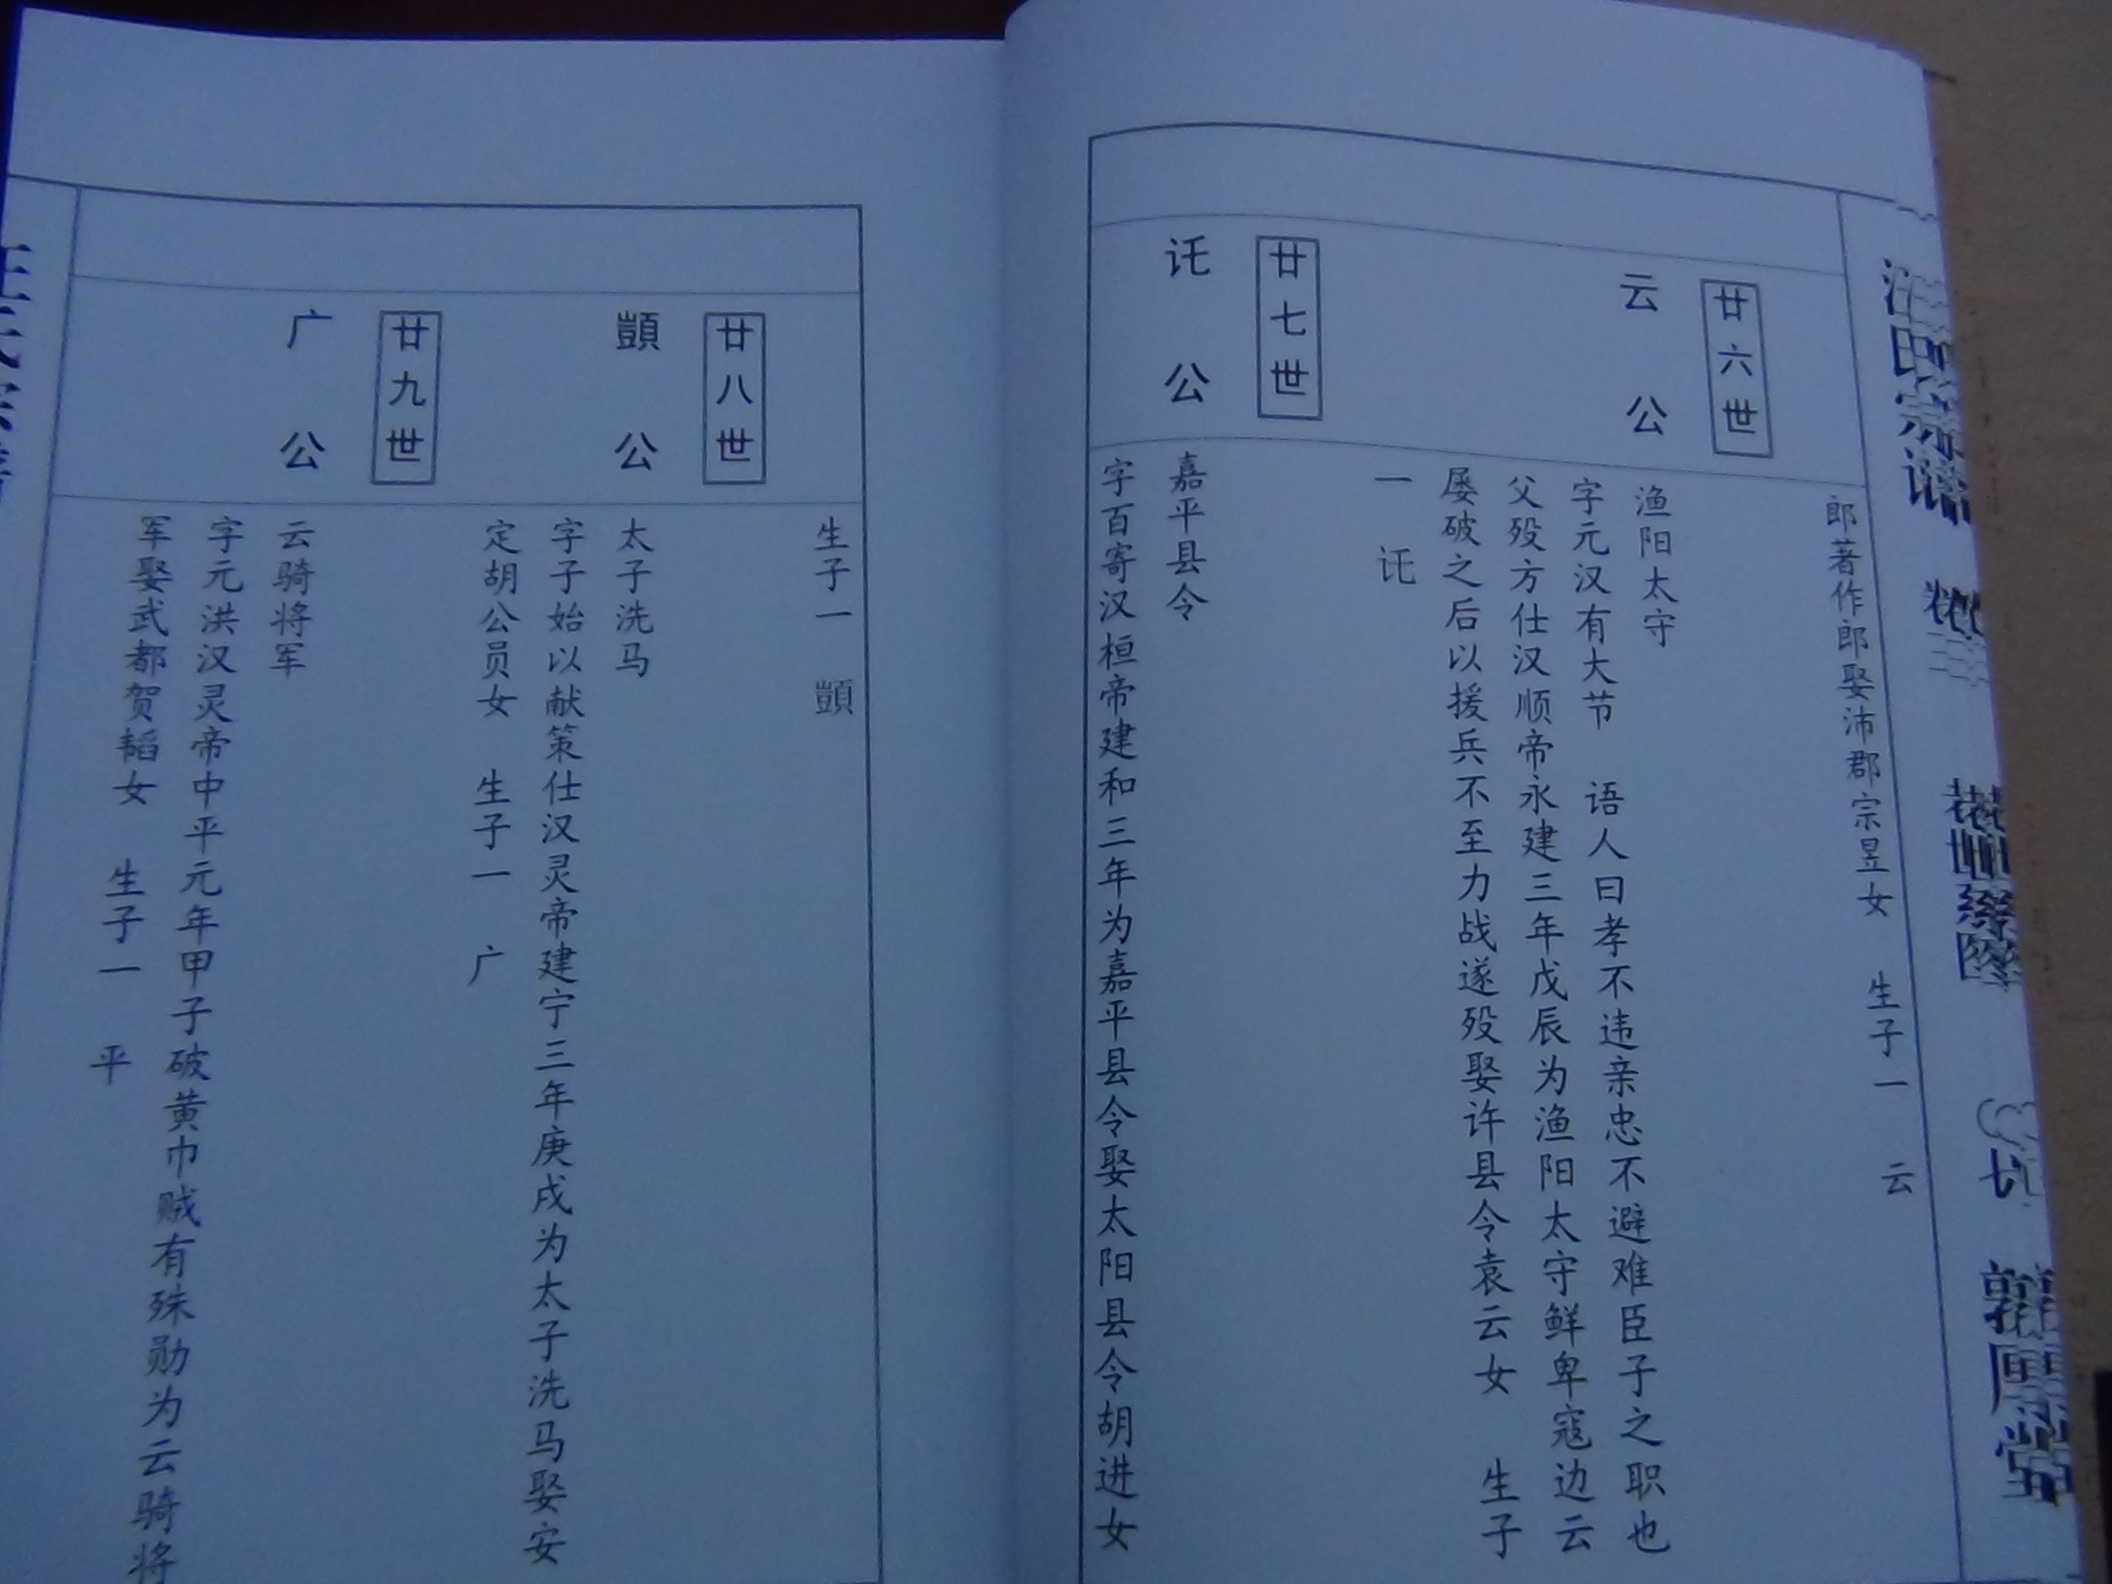 郎著作郎娶沛郡宗昱女　生子一　云
廿六世
云公
渔阳太守
字元汉有大节　语人曰孝不违亲忠不避难臣子之职也
父殁方仕汉顺帝永建三年戊辰为渔阳太守鲜卑寇边云
屡破之后以援兵不至力战遂殁娶许县令袁云女　生子
一　讬
廿七世
讬公
嘉平县令
字百寄汉桓帝建和三年为嘉平县令娶太阳县令胡进女
生子一　顗
廿八世
顗公
太子洗马
字子始以献策仕汉灵帝建宁三年庚戌为太子洗马娶安
定胡公员女　生子一　广
廿九世
广公
云骑将军
字元洪汉灵帝中平元年甲子破黄巾贼有殊勋为云骑将
军娶武都贺韬女　生子一　平